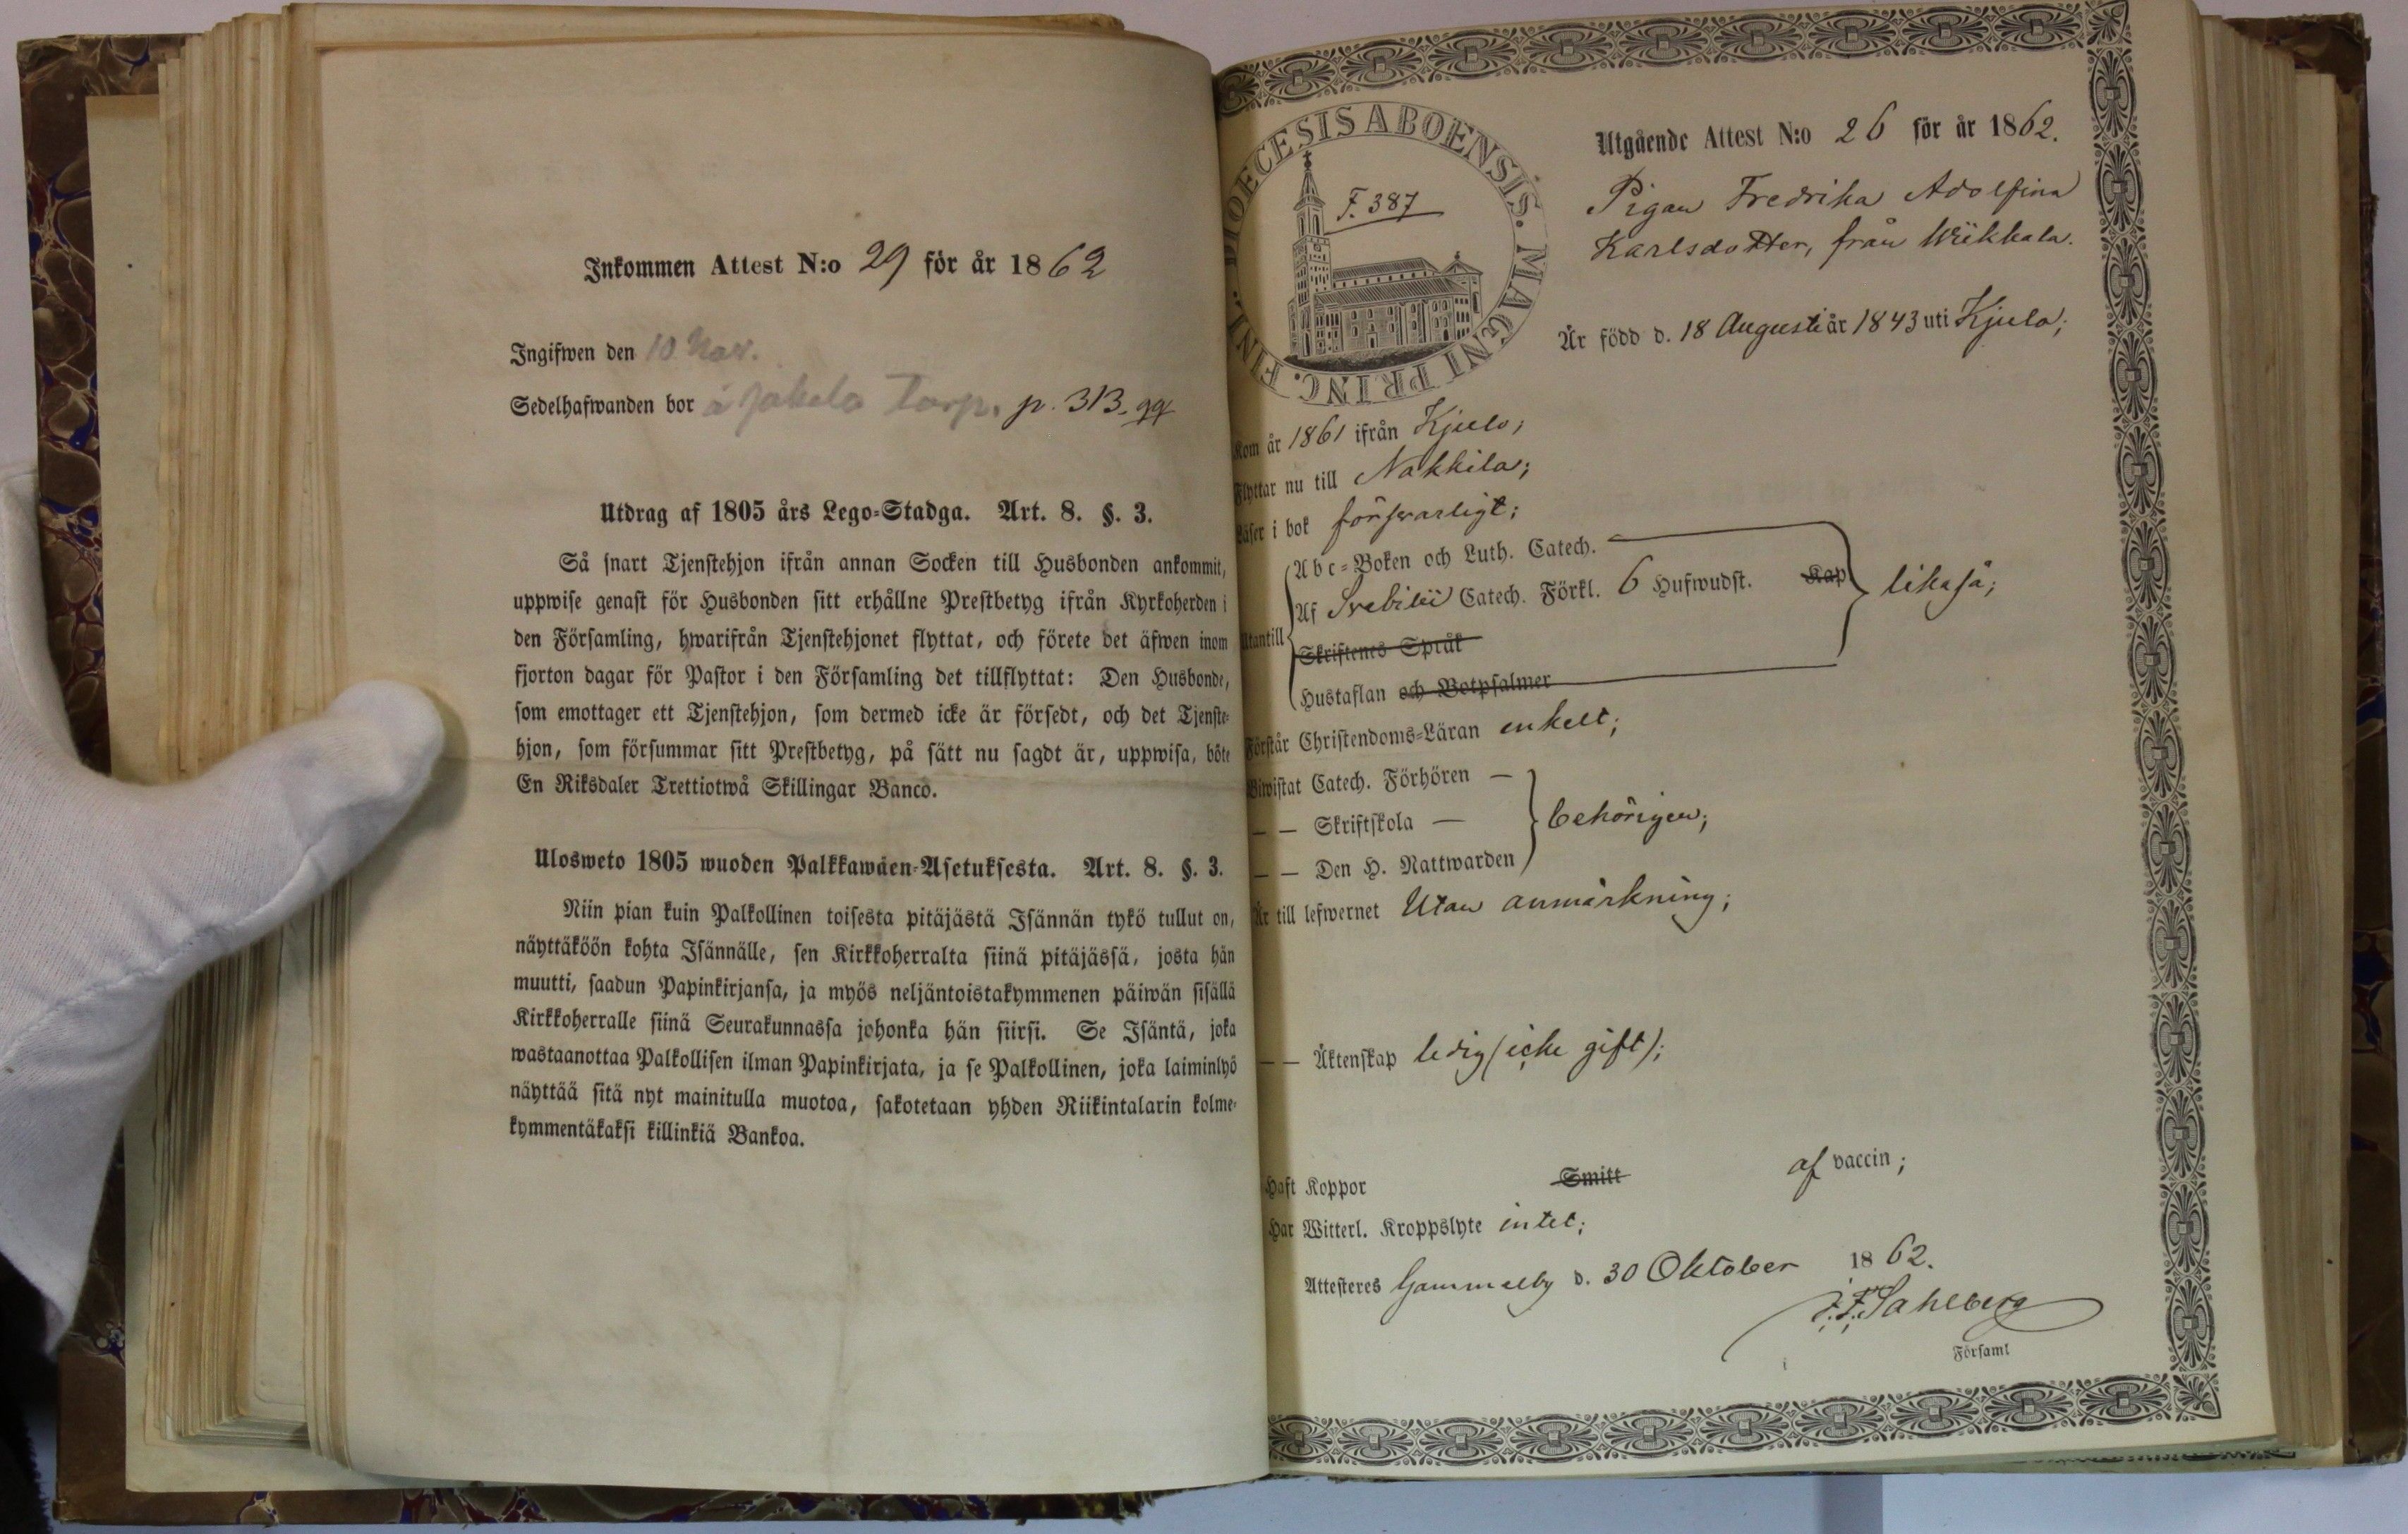 Inkommen Attest N:o 29 för år 1862
Ingifwen den 10 Nov.
Sedelhafwanden bor å Jakela Torp. p. 313.
Utdrag af 1805 års Lego-Stadga. Art. 8. §. 3.
Så snart Tjenstehjon ifrån annan Socken till Husbonden ankommit,
uppwise genast för Husbonden sitt erhållne Prestbetyg ifrån Kyrkoherden i
den Församling, hwarifrån Tjenstehjonet flyttat, och förete det äfwen inom
fjorton dagar för Pastor i den Församling det tillflyttat: Den Husbonde,
som emottager ett Tjenstehjon, som dermed icke är försedt, och det Tjenste-
hjon, som försummar sitt Prestbetyg, på sätt nu sagdt är, uppwisa, böte
En Riksdaler Trettiotwå Skillingar Banco.
Ulosweto 1805 wuoden Palkkawäen-Asetuksesta. Art. 8. §. 3.
Niin pian kuin Palkollinen toisesta pitäjästä Isännän tykö tullut on,
näyttäköön kohta Isännälle, sen Kirkkoherralta siinä pitäjässä, josta hän
muutti, saadun Papinkirjansa, ja myös neljäntoistakymmenen päiwän sisällä
Kirkkoherralle siinä Seurakunnassa johonka hän siirsi. Se Isäntä, joka
wastaanottaa Palkollisen ilman Papinkirjata, ja se Palkollinen, joka laiminlyö
näyttää sitä nyt mainitulla muotoa, sakotetaan yhden Riikintalarin kolme-
kymmentäkaksi killinkiä Bankoa.
DIOECESIS ABOENSIS. MAGNI PRINC. FINL.
F. 387
Utgående Attest N:o 26 för år 1862.
Pigan Fredrika Adolfina
Karlsdotter, från Wiikkala.
Är född d. 18 Augusti år 1843 uti Kjulo;
Kom år 1861 ifrån Kjulo;
Flyttar nu till Nakkila;
Läser i bok försvarligt;
Utantill
Abc-Boken och Luth. Catech.
Af Svebilii Catech. Förkl. 6 Hufwudst. Kap
likaså;
Skriftenes Språk
Hustaflan och Botpsalmer
Förstår Christendoms-Läran enkelt;
Biwistat Catech. Förhören —
— — Skriftskola —
behörigen;
— — Den H. Nattwarden
Är till lefwernet Utan anmärkning;
— — Äktenskap ledig (icke gift);
Haft Koppor Smitt af vaccin;
Har Witterl. Kroppslyte intet;
Attesteres Gammelby d. 30 Oktober 1862.
F. F. Sahlberg
i Församl